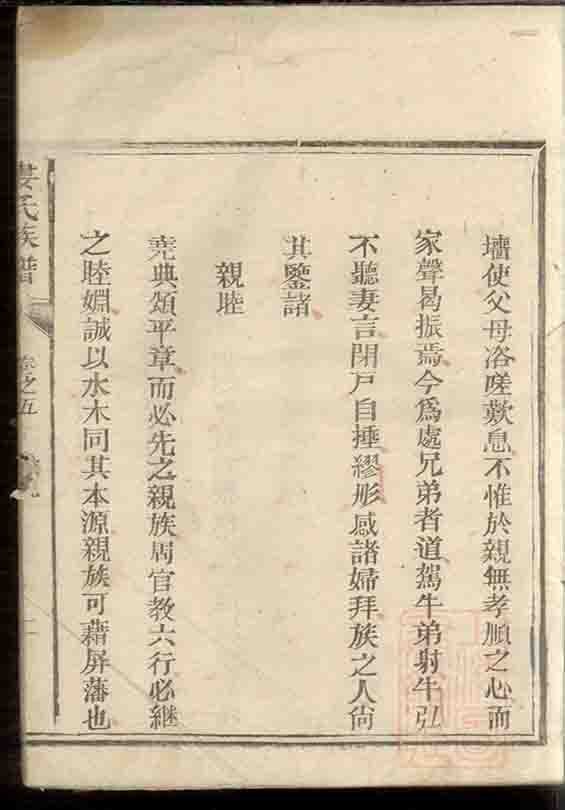 墻使父母洛嗟歎息不惟於親無孝順之心而
家聲曷振焉今為處兄弟者道駕牛弟射牛弘
不聽妻言閉戸自撾繆形感諸婦拜族之人尙
其鑒諸
親睦
堯典頌平章而必先之親族周官教六行必継
之睦婣誠以水木同其本源親族可藉屏藩也
氏族譜
卷之五